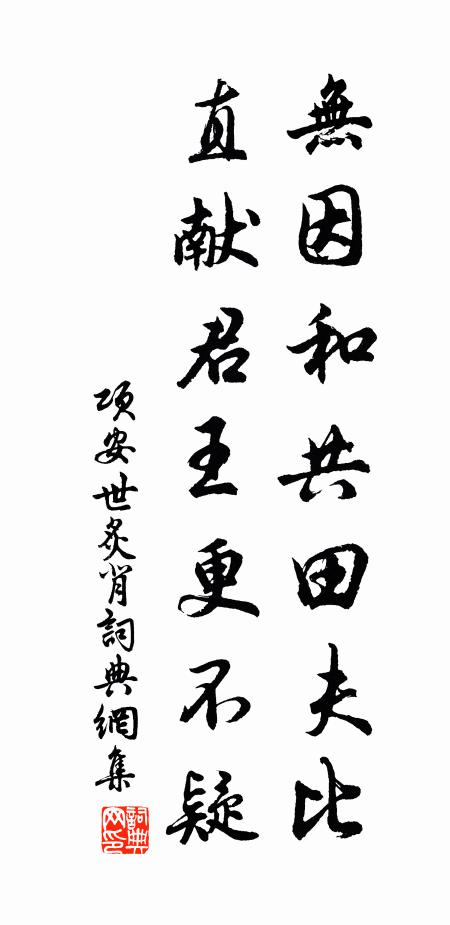 無因和共田夫比
直献君王更不疑
项安世炙背詞典網集
詞典网印